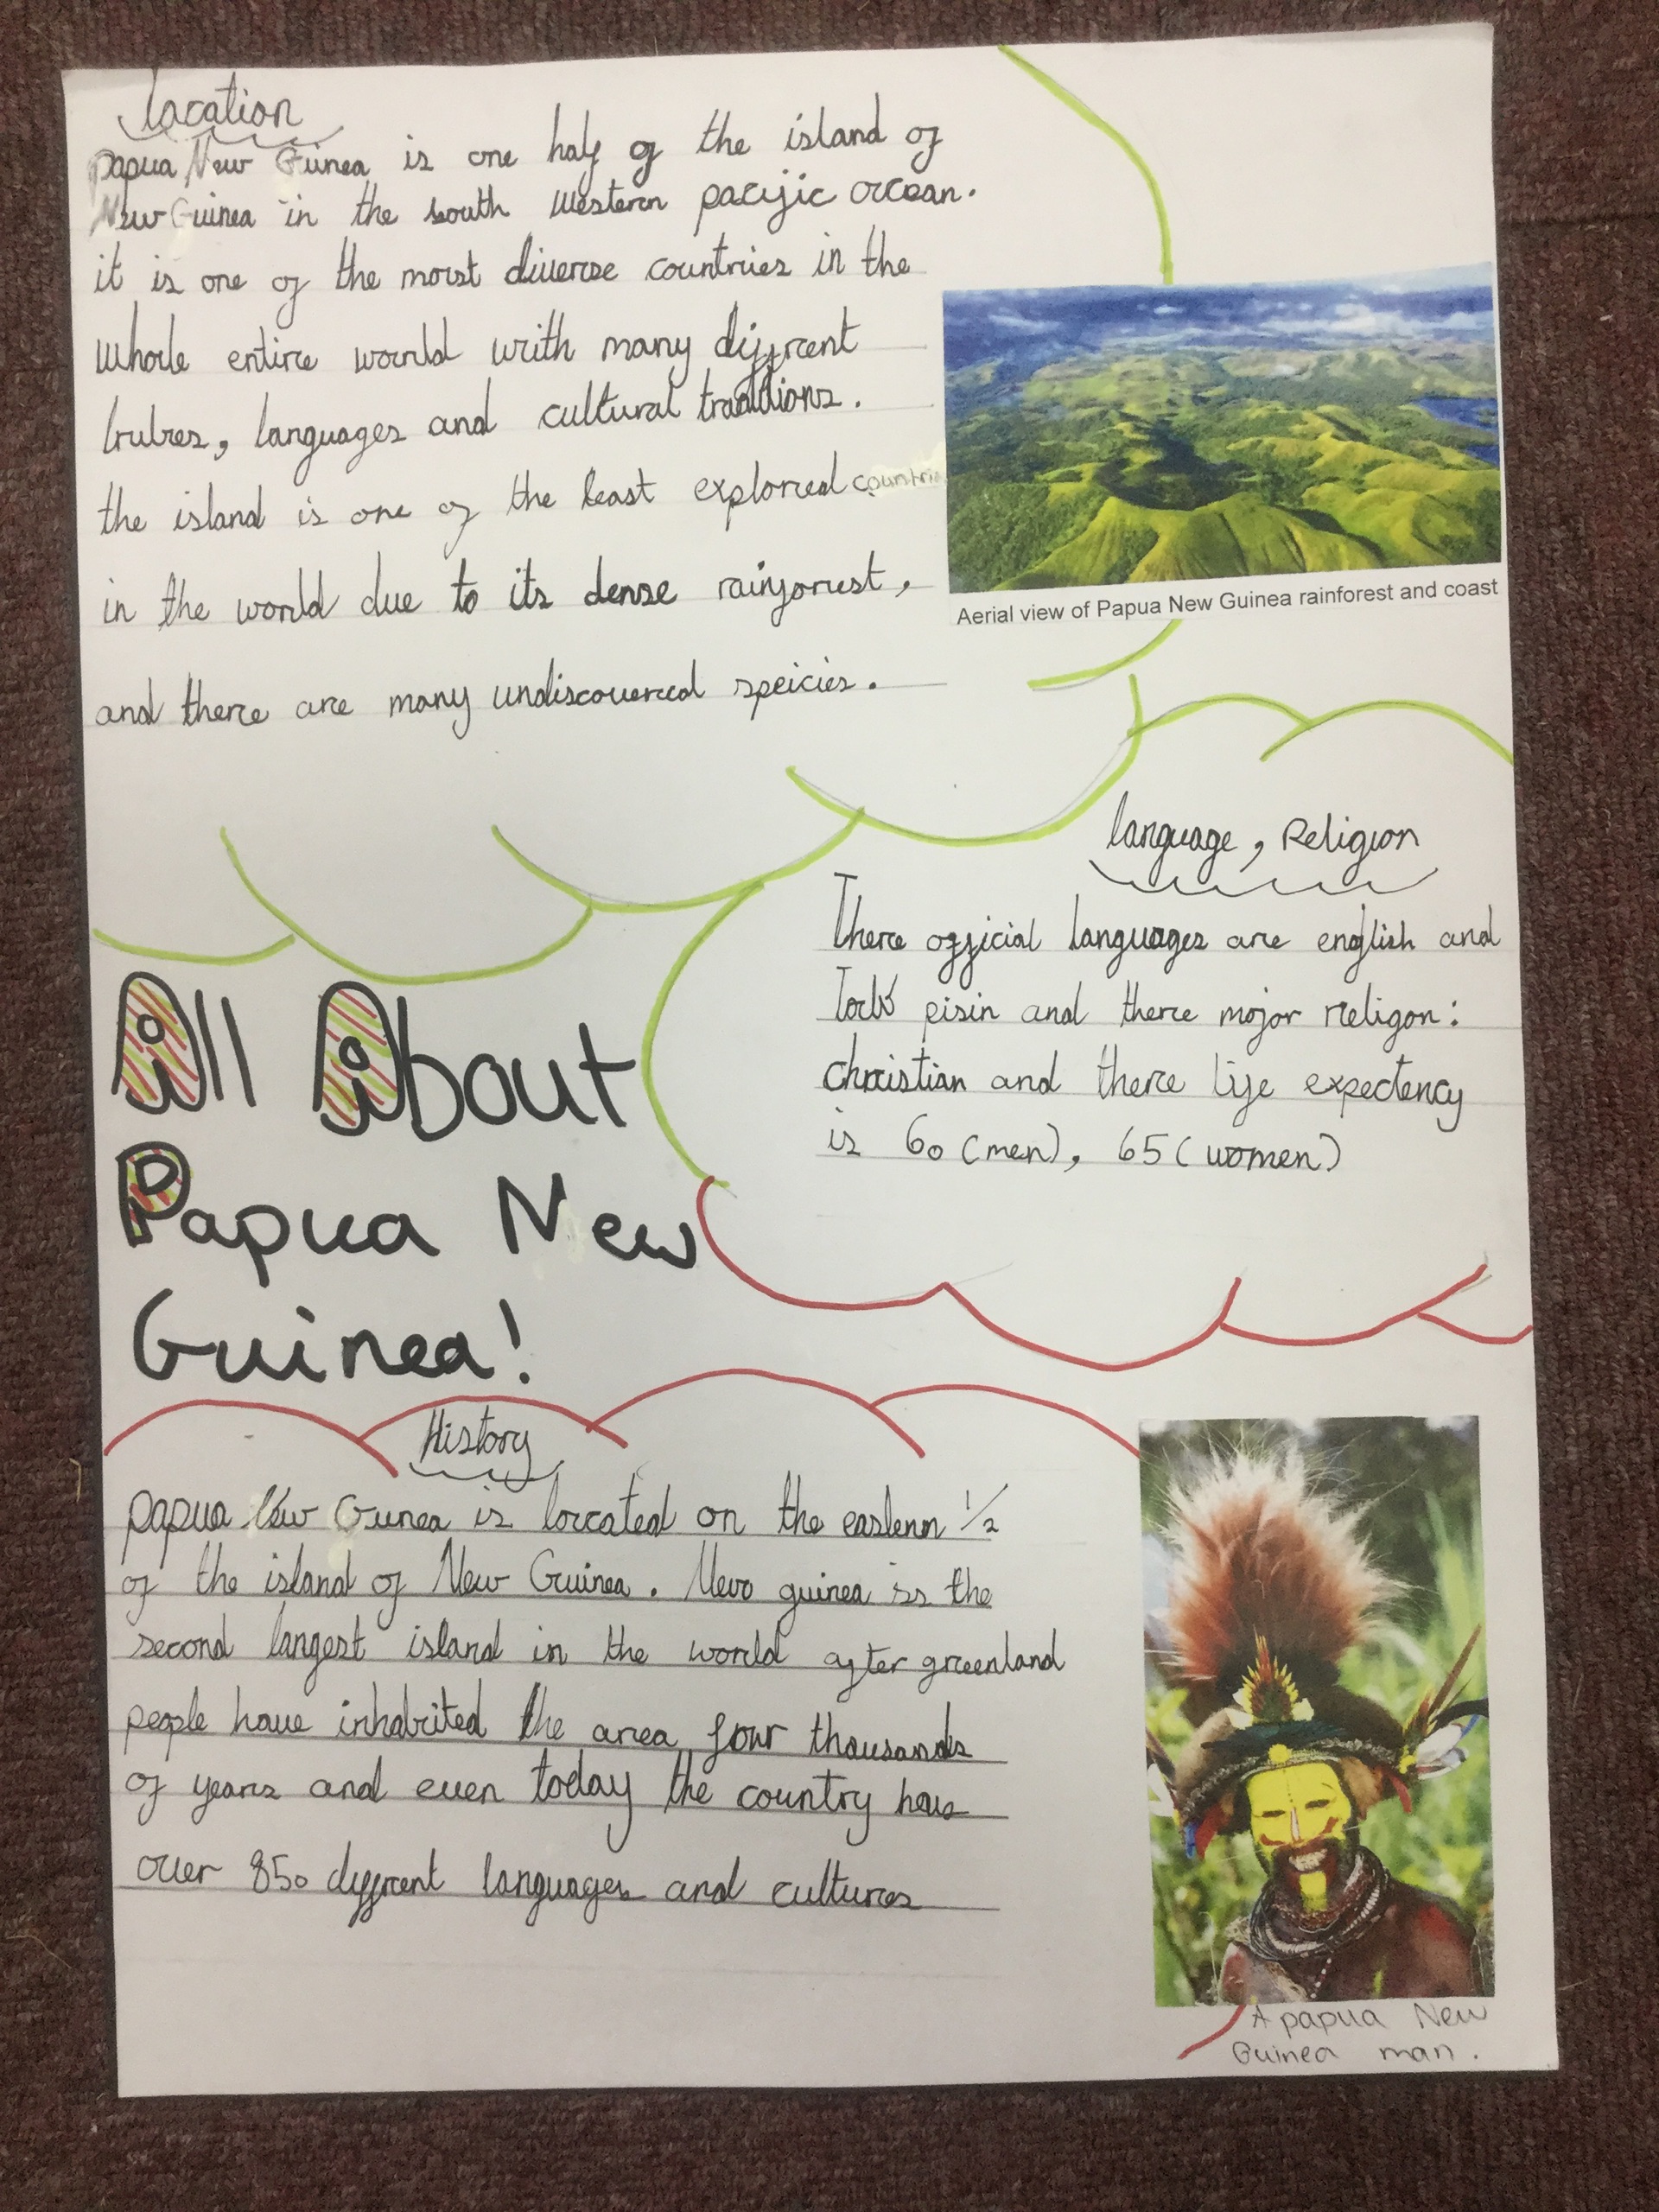 location
papua New Guinea is one half of the island of
New Guinea in the south western pacific ocean.
it is one of the most diverse countries in the
whole entire world with many diffrent
tribes, languages and cultural traditions.
the island is one of the least explored countrie
in the world due to its dense rainforest,
and there are many undiscovered speicies.
Aerial view of Papua New Guinea rainforest and coast
language, Religion
There official languages are english and
Tock pisin and there major religon:
christian and there life expectency
is 60 (men), 65 (women)
All About
Papua New
Guinea!
History
papua New Guinea is located on the eastern 1/2
of the island of New Guinea. New guinea is the
second largest island in the world after greenland
people have inhabited the area four thousands
of years and even today the country has
over 850 diffrent languages and cultures
A papua New
Guinea man.